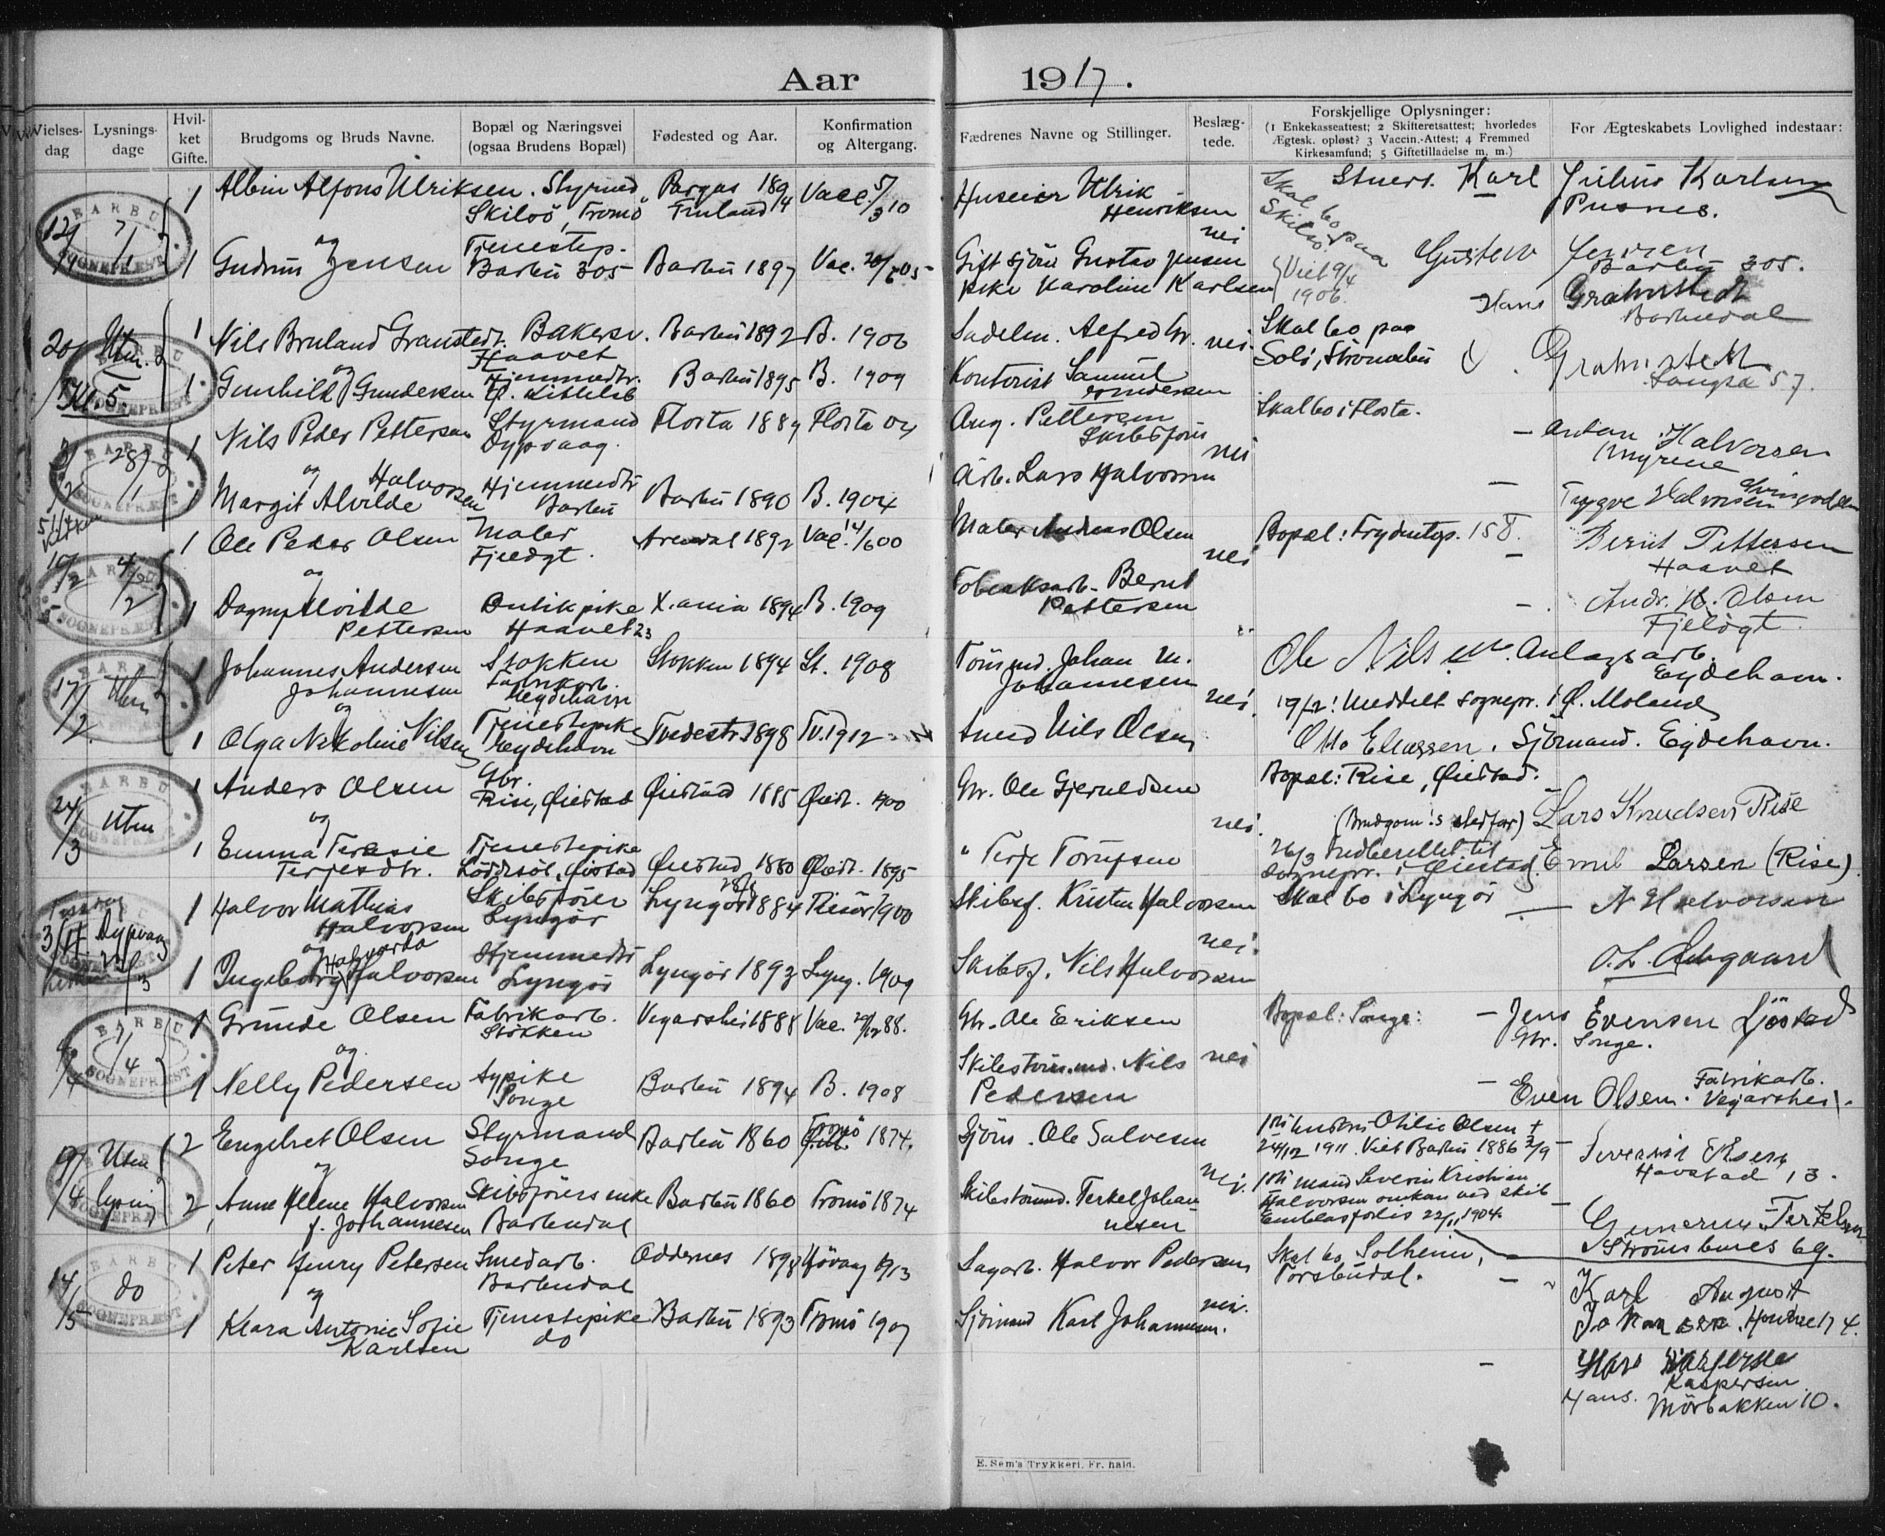 Aar 1917.
Vielses-dag
Lysnings-dage
Hvil-ket Gifte.
Brudgoms og Bruds Navne.
Bopæl og Næringsvei (ogsaa Brudens Bopæl)
Fødested og Aar.
Konfirmation og Altergang.
Fædrenes Navne og Stillinger.
Beslæg-tede.
Forskjellige Oplysninger:
(1 Enkekasseattest; 2 Skifteretsattest; hvorledes
Ægtesk. opløst? 3 Vaccin.-Attest; 4 Fremmed
Kirkesamfund; 5 Giftetilladelse m. m.)
For Ægteskabets Lovlighed indestaar:
BARBU SOGNEPRÆST
1 Albin Alfons Ulriksen. Styrmd Pargas 189 Vacc. 5/3 10
Skilsö, Tromö Finland
Huseier Ulrik Henriksen
nei
Skal bo paa Skilsö
Stuert. Karl Julius Karlsen
Pusnes.
og
1 Gudrun Jensen Tjenestep. Barbu 305 Barbu 1897 Vac. 05
Gift sjöm Gustav Jensen
pike Karoline Karlsen
Viet 9/4 1906.
Gustav Jensen
Barbu 305.
BARBU SOGNEPRÆST
1 Nils Bruland Granstedt. Bakersv. Barbu 1892 B. 1906
Haavet
Sadelm. Alfred Gr. nei
Skal bo paa
Solö, Strömsbu
Hans Grahnstedt
Barbudal
og
1 Gunhild Gundersen Hjemmedtr. Barbu 1895 B. 1909
Kontorist Samuel Gundersen
Grahnstedt
Langsæ 57.
BARBU SOGNEPRÆST
3/2 28/1
1 Nils Peder Pettersen Styrmand Dypvaag. Flosta 1889 Flosta 04
Aug. Pettersen Skibsförer
nei
Skal bo i Flosta.
Anton Halvorsen
Myrene
og
1 Margit Alvilde Halvorsen Hjemmedtr Barbu Barbu 1890 B. 1904
Arb. Lars Halvorsen
Trygve Halvorsen
BARBU SOGNEPRÆST
10/2 4/2
1 Ole Peder Olsen Maler Fjeldgt. Arendal 1892 Vac. 14/6 00
Maler Andreas Olsen
nei
Bopæl: Frydentop. 158.
Bernt Pettersen
Haavet
og
1 Dagny Alvilde Pettersen Butikpike Haavet 23 X.ania 1894 B. 1909
Tobaksarb. Bernt Pettersen
Andr. M. Olsen
Fjeldgt.
BARBU SOGNEPRÆST
17/2 Uten
1 Johannes Andersen Johannesen Stokken Fabrikarb. Eydehavn Stokken 1894 St. 1908
Tömmd. Johan M. Johannesen
nei
Ole Nilsen. Anlagsarb.
Eydehavn.
19/2! Meddelt sognepr. i Ö. Moland
og
1 Olga Nikoline Nilsen Tjenestepike Eydehavn Tvedestr. 1898 Tv. 1912
Smed Nils Olsen
Otto Eliassen. Sjömand. Eydehavn.
BARBU SOGNEPRÆST
24/3 Uten
1 Anders Olsen Gbr. Rise, Öiestad Öiestad 1885 Öiest. 1900
Gbr. Ole Gjeruldsen
nei.
Bopæl: Rise, Öiestad.
(Brudgom's stedfar) Lars Knudsen Rise
og
1 Emma Terasie Terjesdtr. Tjenestepike Löddesöl, Öiestad Öiestad 1880 Öiest. 1895
" Terje Torufsen
26/3 Indberettet til
sognepr. i Öiestad
Emil Larsen (Rise)
BARBU SOGNEPRÆST
3/4 Dypvaag
1 Halvor Mathias Halvorsen Skibsförer Lyngör Lyngör 1884 Risör 1900
Skibsf. Kristen Halvorsen
nei.
Skal bo i Lyngör
N Halvorsen
og
1 Ingeborg Halvarda Halvorsen Hjemmedtr Lyngör Lyngör 1893 Lyng. 1909
Skibsf. Nils Halvorsen
BARBU SOGNEPRÆST
1/4
1 Grunde Olsen Fabrikarb. Stokken Vegarshei 1888 Vac. 88.
Gbr. Ole Eriksen
nei
Bopæl: Songe:
Jens Evensen Sjöstad
Gbr. Songe.
og
1 Nelly Pedersen Sypike Songe Barbu 1894 B. 1908
Skibstömmd. Nils Pedersen
Even Olsen. Fabrikarb. Vegarshei.
BARBU SOGNEPRÆST
9/4 Uten lysning
2 Engebret Olsen Styrmand Songe Barbu 1860 Tromö 1874.
Sjöm. Ole Salvesen
nei.
1ste hustru Otilie Olsen †
24/12 1911. Viet Barbu 1886 2/9
Havstad 13.
og
2 Anne Helene Halvorsen f. Johannesen Skibsförers enke Barbudal Barbu 1860 Tromö 1874
Skibstömmd. Terkel Johannesen
1ste mand Severin Kristian
Halvorsen omkom ved skib
Emblas forlis 22/11 1904.
Gunerius Terkelsen
Strömsbunes 69.
BARBU SOGNEPRÆST
14/5 do
1 Peter Henry Petersen Smedarb. Barbudal Oddernes 1898 Hövaag 1913
Sagarb. Halvor Pedersen
nei.
Skal bo Solheim,
Torsbudal.
Karl August
Johansen. 174.
og
1 Klara Antonie Sofie Karlsen Tjenestepike do Barbu 1893 Tromö 1907
Sjömand Karl Johannesen.
Kaspersen
Hans. Mörbakken 10.
E. Sem's Trykkeri. Fr. hald.